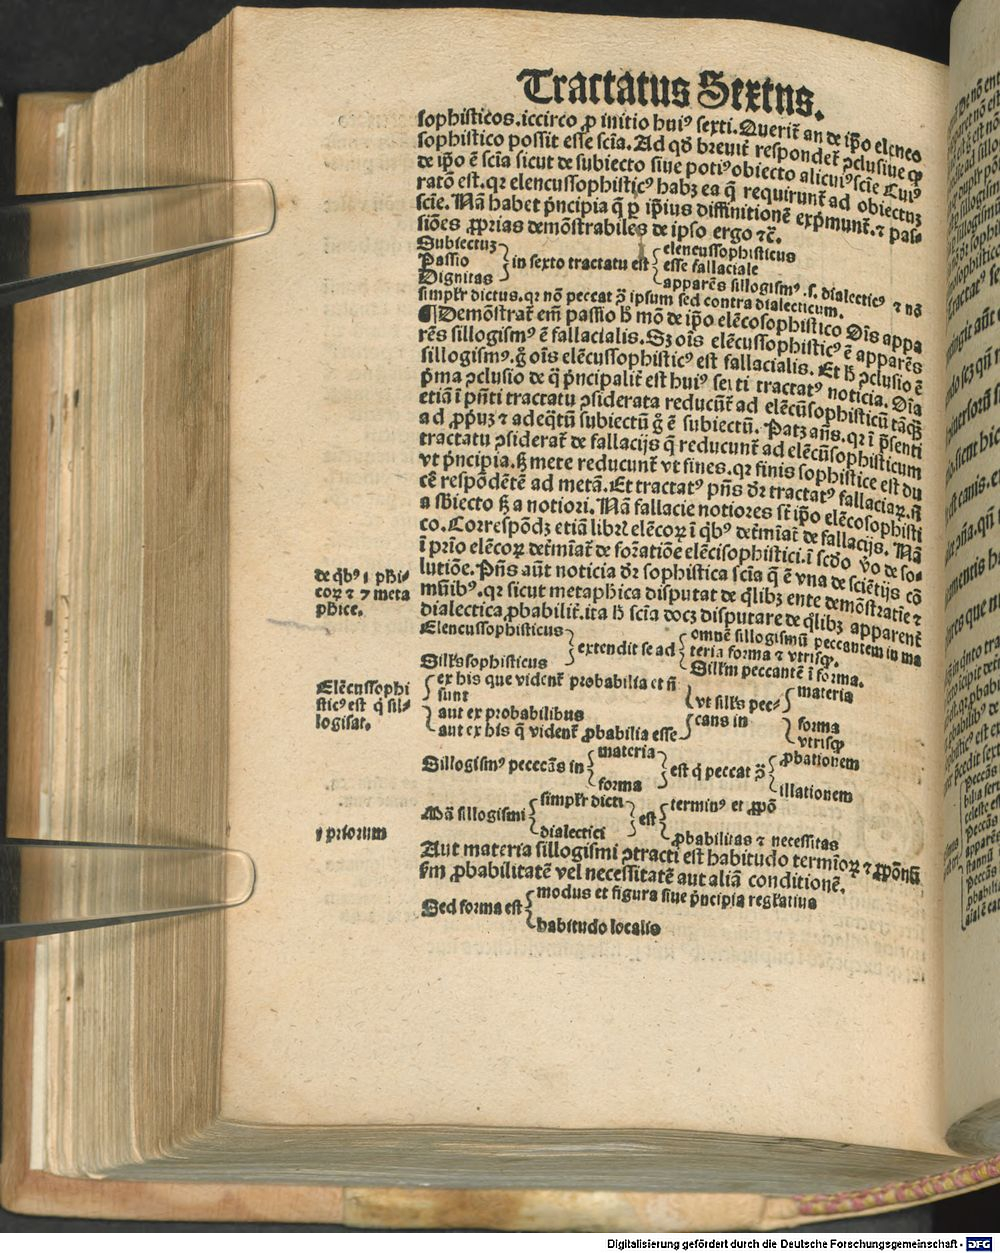 Tractatus Sextus.
sophisticos.iccirco ꝓ initio huiꝰ sexti.Querit᷑ an de ip̄o elenco
sophistico possit esse scīa. Ad qd̄ breuit᷑ respondet᷑ ꝯclusiue ꝙ
de ip̄o ē scīa sicut de subiecto siue potiꝰ obiecto alicuiꝰ scīe Cuiꝰ
ratō est.qꝛ elencussophisticꝰ habꝫ ea q̄ requirunt᷑ ad obiectuꝫ
scīe. Nā habet pͥncipia q̄ ꝑ ip̄ius diffinitionē exprimunt᷑.⁊ pas⸗
siões ꝓprias demōstrabiles de ipso ergo ⁊c̄.
Subiectuꝫ
Passio
Dignitas
in sexto tractatu est
elencussophisticus
esse fallaciale
apparēs sillogismꝰ .s. dialecticꝰ ⁊ nō
simplr̄ dictus.qꝛ nō peccat ꝯ̄ ipsum sed contra dialecticum.
¶Demōstrat᷑ em̄ passio h̄ mō de ip̄o elēcosophistico Oīs appa
rēs sillogismꝰ ē fallacialis. Sꝫ oīs elēcussophisticꝰ ē apparēs
sillogismꝰ.g̊ oīs elēcussophisticꝰ est fallacialis. Et h̄ ꝯclusio ē
pͥma ꝯclusio de q̄ pͥncipalit᷑ est huiꝰ sexti tractatꝰ noticia. Oīa
etiā ī pn̄ti tractatu ꝯsiderata reducūt᷑ ad elēcūsophisticū tāꝙ̄
ad ꝓpͥuꝫ ⁊ adeq̄tū subiectū g̊ ē subiectū. Patꝫ an̄s.qꝛ ī pͥsenti
tractatu ꝯsiderat᷑ de fallacijs q̄ reducunt᷑ ad elēcūsophisticum
vt pͥncipia.ꝫ mete reducunt᷑ vt fines.qꝛ finis sophistice est du
cē respōdētē ad metā. Et tractatꝰ pn̄s dꝛ̄ tractatꝰ fallaciaꝝ.nō
a sb̄iecto ꝫ a notiori. Nā fallacie notiores st̄ ip̄o elēcosophisti
co. Correspōdꝫ etiā libꝛl elēcoꝝ ī qͥbꝰ det᷑mīat᷑ de fallacijs. Nā
ī pr̄io elēcoꝝ det᷑mīat᷑ de foꝛatiōe elēcisophistici.ī scd̄o ꝟo de so⸗
lutiōe. Pn̄s aūt noticia dꝛ̄ sophistica scīa q̄ ē vna de sciētijs cō
mūibꝰ.qꝛ sicut metaph̄ica disputat de qͥlibꝫ ente demōstratīe ⁊
dialectica ꝓbabilit᷑.ita h̄ scīa docꝫ disputare de qͥlibꝫ apparent᷑
de qͥbꝰ 1 ph̄i⸗
coꝝ ⁊ 7 meta
ph̄ice.
Elencussophisticus
Sill̄ssophisticus
extendit se ad
omnē sillogismū peccantem in ma
teria forma ⁊ vtrisqꝫ.
Sill̄m peccantē ī forma.
Elēcussophi
sticꝰ est qͥ sil⸗
logisat.
ex his que vident᷑ probabilia et nō
sunt
aut ex probabilibus
aut ex his q̄ vident᷑ ꝓbabilia esse
vt sill̄s pec⸗
cans in
materia
forma
vtrisqꝫ
Sillogismꝰ peccās in
materia
forma
est qͥ peccat ꝯ̄
ꝓbationem
illationem
1 priorum
Mā sillogismi
simplr̄ dicti
dialectici
est
terminꝰ et ꝓpō
ꝓbabilitas ⁊ necessitas
Aut materia sillogismi ꝯtracti est habitudo termīoꝝ ⁊ ꝓpōnū
ẜm ꝓbabilitatē vel necessitatē aut aliā conditionē.
Sed forma est
modus et figura siue pͥncipia regl̄atiua
habitudo localis
Digitalisierung gefördert durch die Deutsche Forschungsgemeinschaft - DFG